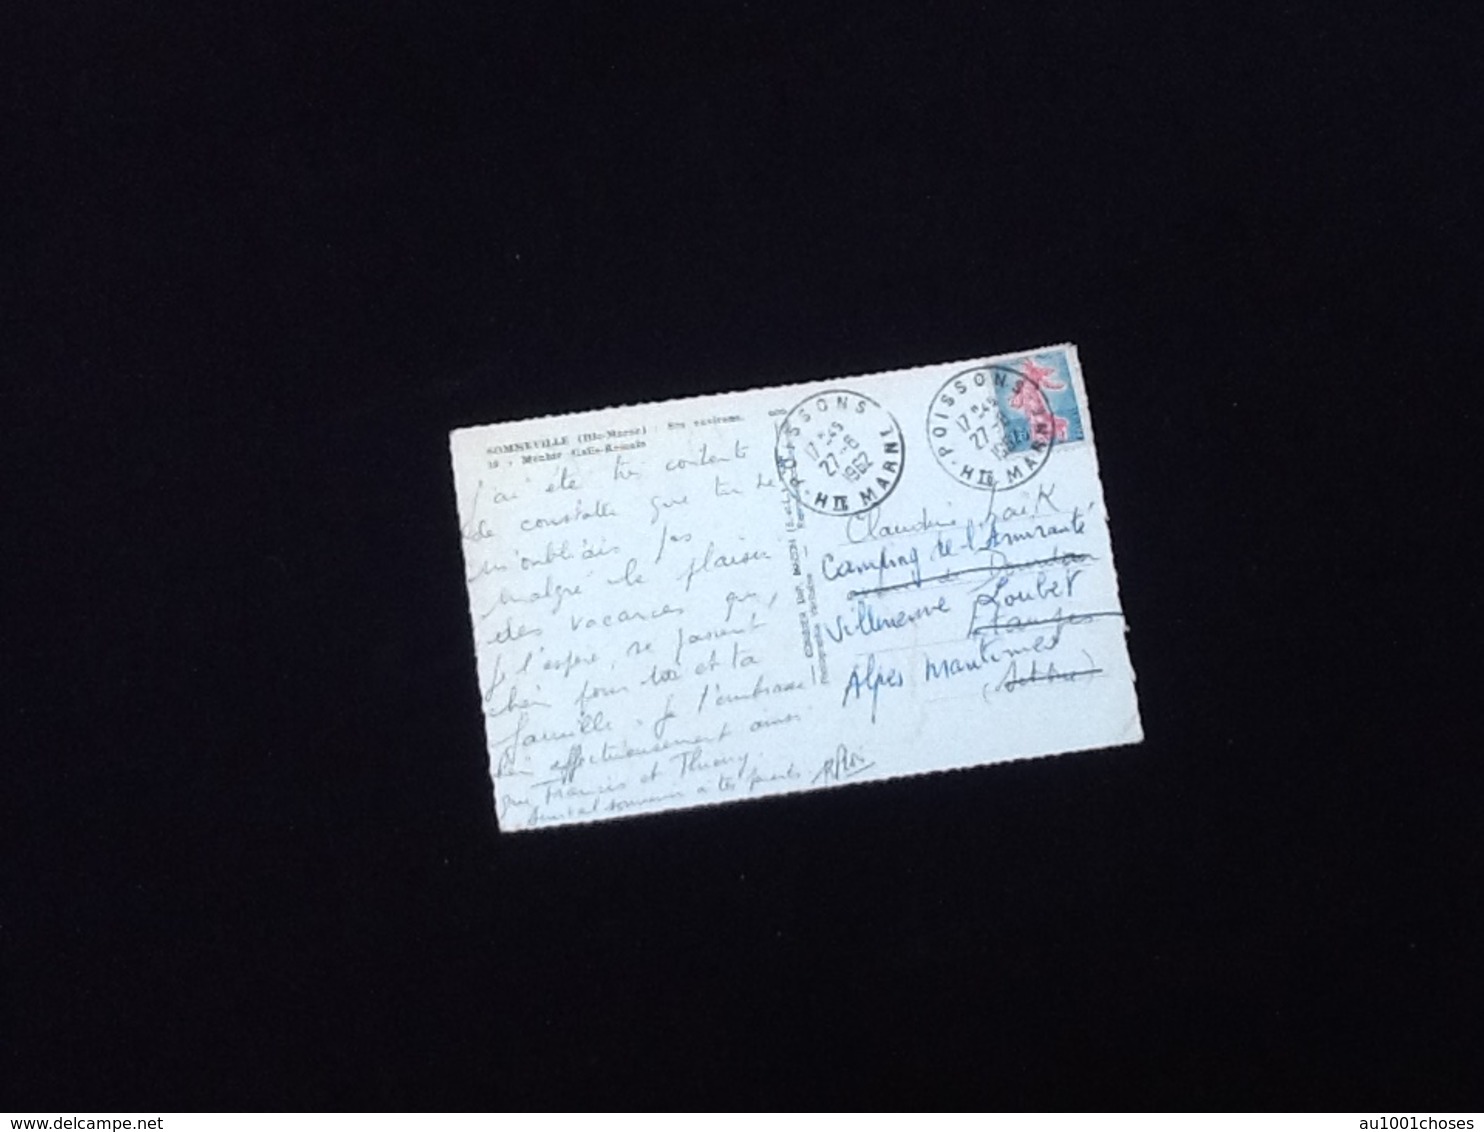 SOMNEVILLE (Hte-Marne) Ses environs.
10 - Menhir Gallo-Romain
j'ai été très contente
de constater que tu ne
m'oubliais pas
malgré le plaisir
des vacances qui,
je l'espère, se passent
bien pour toi et ta
famille. Je t'embrasse
bien affectueusement ainsi
que Francis et Thierry.
souvenir à tes parents
POISSONS
17H45
27-8
1962
HTE MARNE
POISSONS
17H45
27-8
1962
HTE MARNE
Claudine
Camping de l'Amirauté
Villeneuve Loubet
Alpes Maritimes
delcampe.net
au1001choses